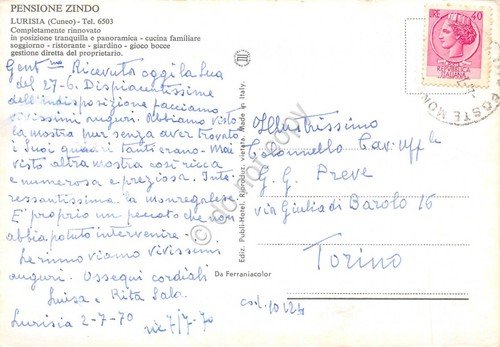 PENSIONE ZINDO
LURISIA (Cuneo) - Tel. 6503
Completamente rinnovato
in posizione tranquilla e panoramica - cucina familiare
soggiorno - ristorante - giardino - gioco bocce
gestione diretta del proprietario.
Gent.ma Ricevuto oggi la Sua
del 27-6. Dispiacentissime
dell'indisposizione facciamo
vivissimi auguri. Abbiamo visto
la mostra pur senza aver trovato
i Suoi quadri tanti erano. Mai
visto altra mostra così ricca
e numerosa e preziosa. Inte
ressantissima la monregalese.
E' proprio un peccato che non
abbia potuto intervenire.
Le rinnoviamo vivissimi
auguri. Ossequi cordiali
Luisa e Rita Sala
Lurisia 2-7-70
7/7-70
Ediz. Publi-Hotel. Riproduz. vietata. Made in Italy.
Da Ferraniacolor
LIRE 40
REPUBBLICA
ITALIANA
POSTE MON
Illustrissimo
Colonnello Cav. Uff.le
G. G. Preve
via Giulia di Barolo 16
Torino
cod. 10124